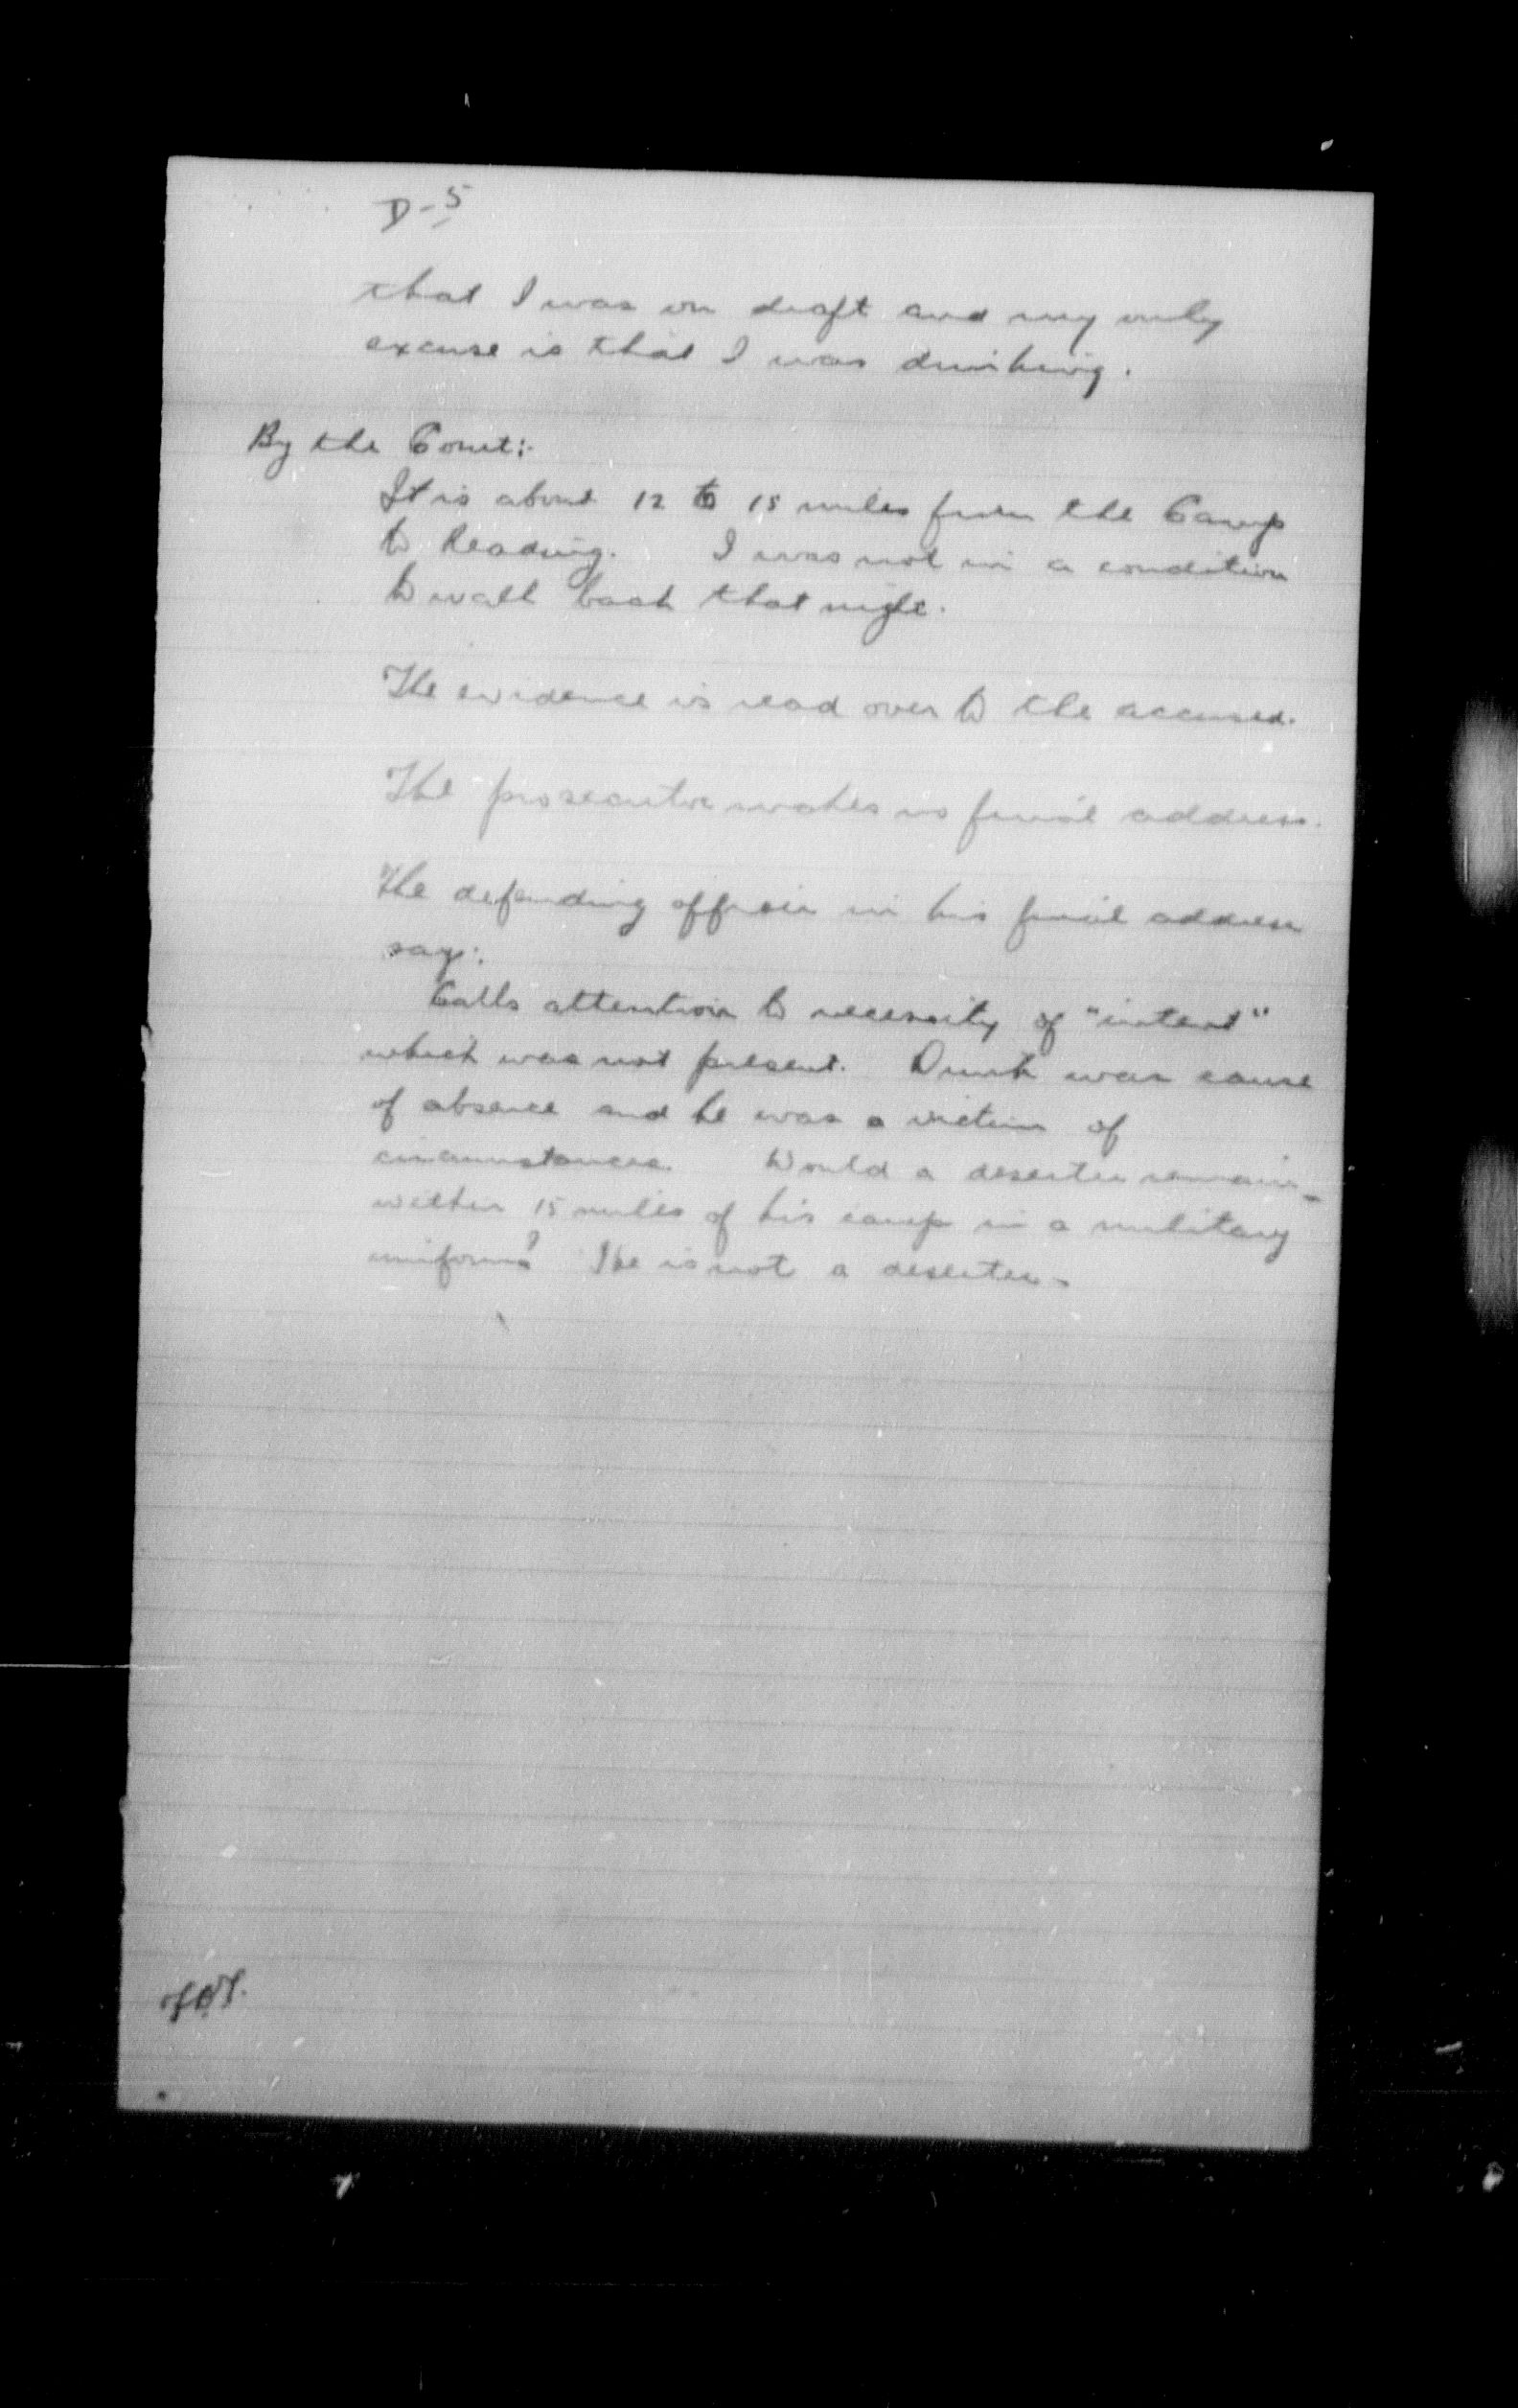 D-5
that I was on draft and my only
excuse is that I was drinking.
By the Court:-
It is about 12 to 15 miles from the Camp
to Reading. I was not in a condition
to walk back that night.
The evidence is read over to the accused.
The prosecutor makes no final address.
The defending officer in his final address
say:
Calls attention to necessity of "intent"
which was not present. Drink was cause
of absence and he was a victim of
circumstances. Would a deserter remain
within 15 miles of his camp in a military
uniform? He is not a deserter.